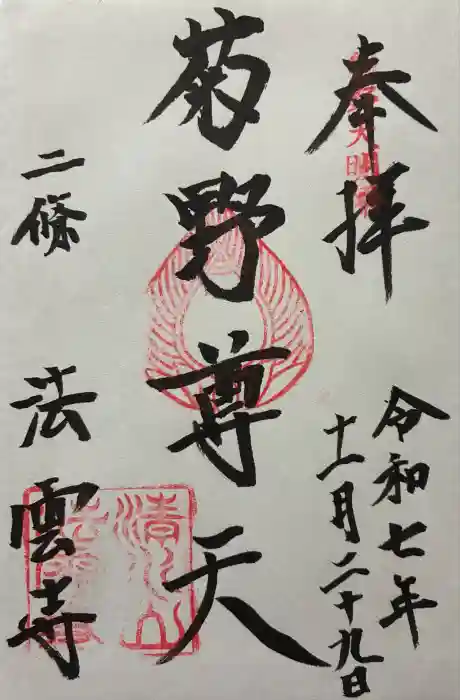 奉拝
令和七年
十一月二十九日
菊野尊天
二條
法雲寺
清水山
法雲寺